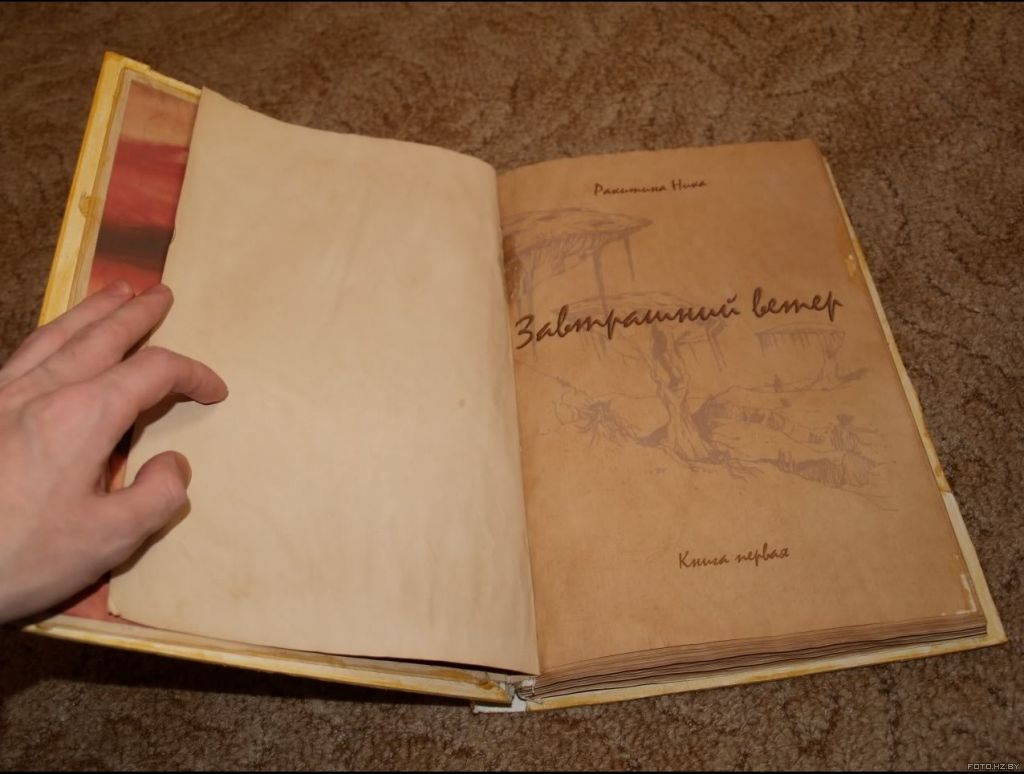 Ракитина Ника
Завтрашний ветер
Книга первая
FOTO.HZ.BY